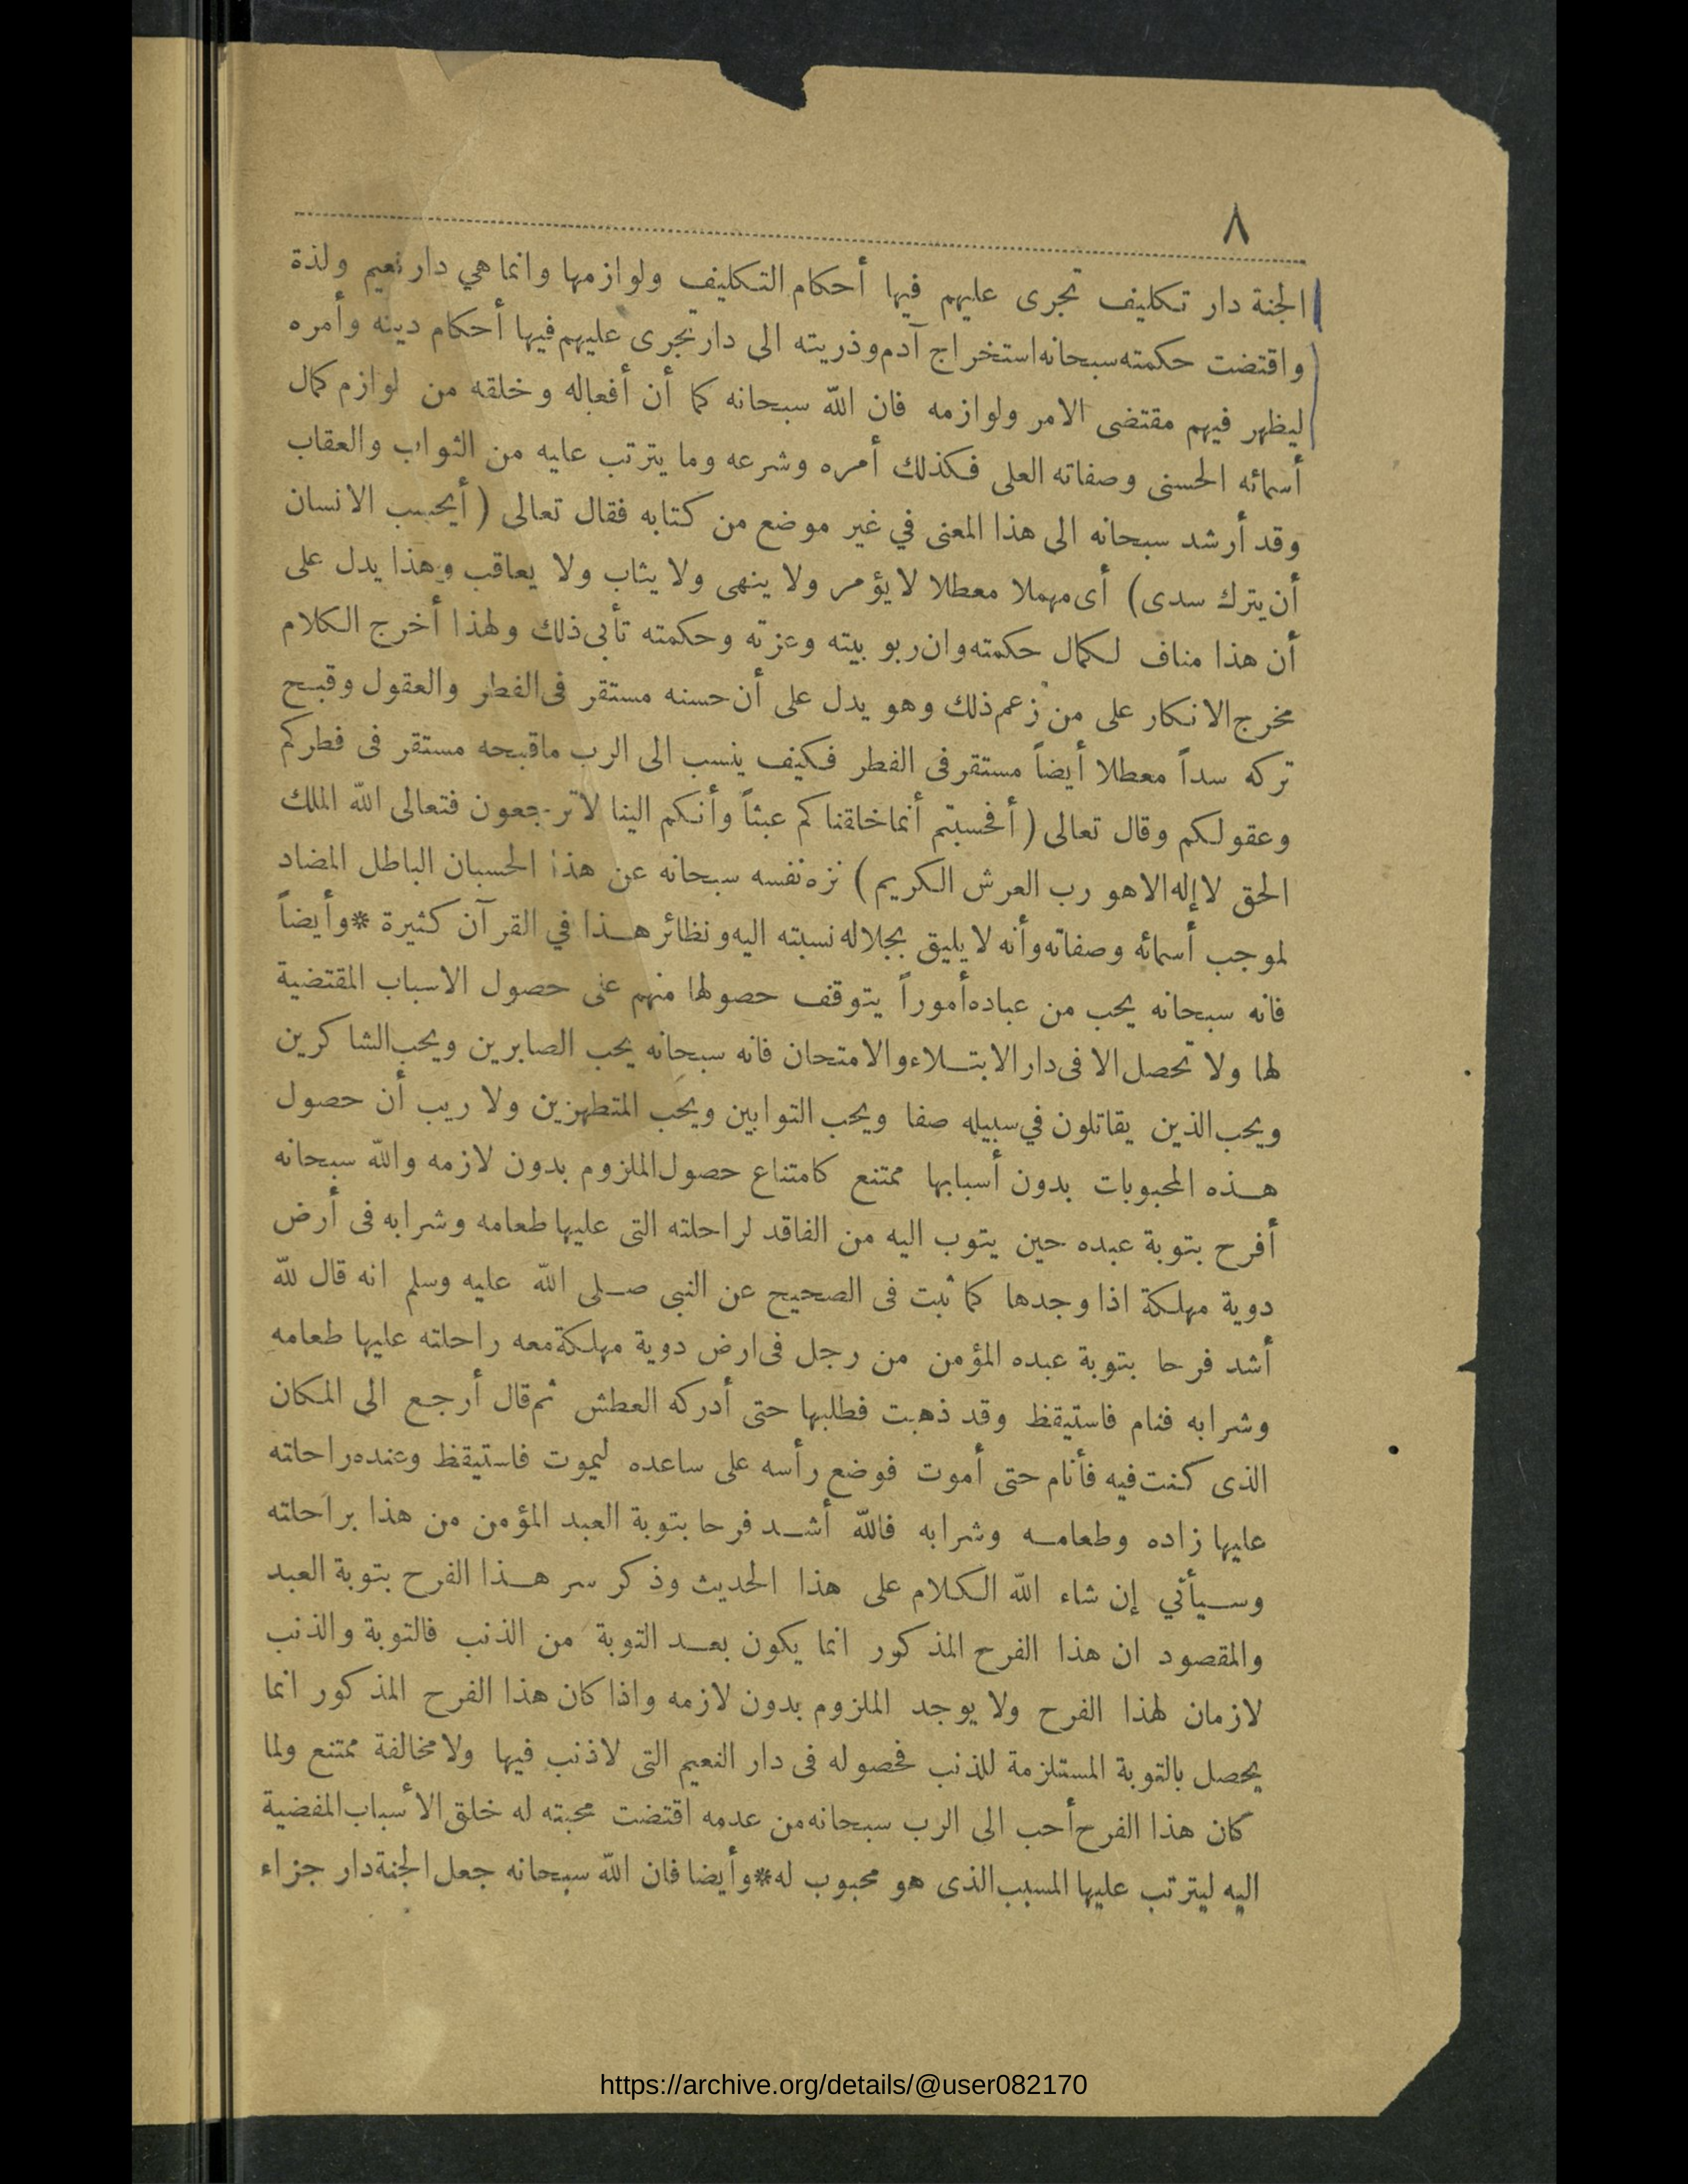 ٨
الجنة دار تكليف تجرى عليهم فيها أحكام التكليف ولوازمها وانما هي دار نعيم ولذة
واقتضت حكمته سبحانه استخراج آدم وذريته الى دار تجرى عليهم فيها أحكام دينه وأمره
ليظهر فيهم مقتضى الامر ولوازمه فان الله سبحانه كما أن أفعاله وخلقه من لوازم كمال
أسمائه الحسنى وصفاته العلى فكذلك أمره وشرعه وما يترتب عليه من الثواب والعقاب
وقد أرشد سبحانه الى هذا المعنى في غير موضع من كتابه فقال تعالى ( أيحسب الانسان
أن يترك سدى ) أى مهملا معطلا لا يؤمر ولا ينهى ولا يثاب ولا يعاقب وهذا يدل على
أن هذا مناف لكمال حكمته وان ربوبيته وعزته وحكمته تأبى ذلك ولهذا أخرج الكلام
مخرج الانكار على من زعم ذلك وهو يدل على أن حسنه مستقر فى الفطر والعقول وقبح
تركه سداً معطلا أيضاً مستقر فى الفطر فكيف ينسب الى الرب ما قبحه مستقر فى فطركم
وعقولكم وقال تعالى ( أفحسبتم أنما خلقناكم عبثاً وأنكم الينا لا ترجعون فتعالى الله الملك
الحق لا إله الا هو رب العرش الكريم ) نزه نفسه سبحانه عن هذا الحسبان الباطل المضاد
لموجب أسمائه وصفاته وأنه لا يليق بجلاله نسبته اليه ونظائر هذا في القرآن كثيرة * وأيضاً
فانه سبحانه يحب من عباده أموراً يتوقف حصولها منهم على حصول الاسباب المقتضية
لها ولا تحصل الا فى دار الابتلاء والامتحان فانه سبحانه يحب الصابرين ويحب الشاكرين
ويحب الذين يقاتلون في سبيله صفا ويحب التوابين ويحب المتطهرين ولا ريب أن حصول
هذه المحبوبات بدون أسبابها ممتنع كامتناع حصول الملزوم بدون لازمه والله سبحانه
أفرح بتوبة عبده حين يتوب اليه من الفاقد لراحلته التى عليها طعامه وشرابه فى أرض
دوية مهلكة اذا وجدها كما ثبت فى الصحيح عن النبى صلى الله عليه وسلم انه قال لله
أشد فرحا بتوبة عبده المؤمن من رجل فى ارض دوية مهلكة معه راحلته عليها طعامه
وشرابه فنام فاستيقظ وقد ذهبت فطلبها حتى أدركه العطش ثم قال أرجع الى المكان
الذى كنت فيه فأنام حتى أموت فوضع رأسه على ساعده ليموت فاستيقظ وعنده راحلته
عليها زاده وطعامه وشرابه فالله أشد فرحا بتوبة العبد المؤمن من هذا براحلته
وسيأتي إن شاء الله الكلام على هذا الحديث وذكر سر هذا الفرح بتوبة العبد
والمقصود ان هذا الفرح المذكور انما يكون بعد التوبة من الذنب فالتوبة والذنب
لازمان لهذا الفرح ولا يوجد الملزوم بدون لازمه واذا كان هذا الفرح المذكور انما
يحصل بالتوبة المستلزمة للذنب فحصوله فى دار النعيم التى لا ذنب فيها ولا مخالفة ممتنع ولما
كان هذا الفرح أحب الى الرب سبحانه من عدمه اقتضت محبته له خلق الأسباب المفضية
اليه ليترتب عليها المسبب الذى هو محبوب له * وأيضا فان الله سبحانه جعل الجنة دار جزاء
https://archive.org/details/@user082170